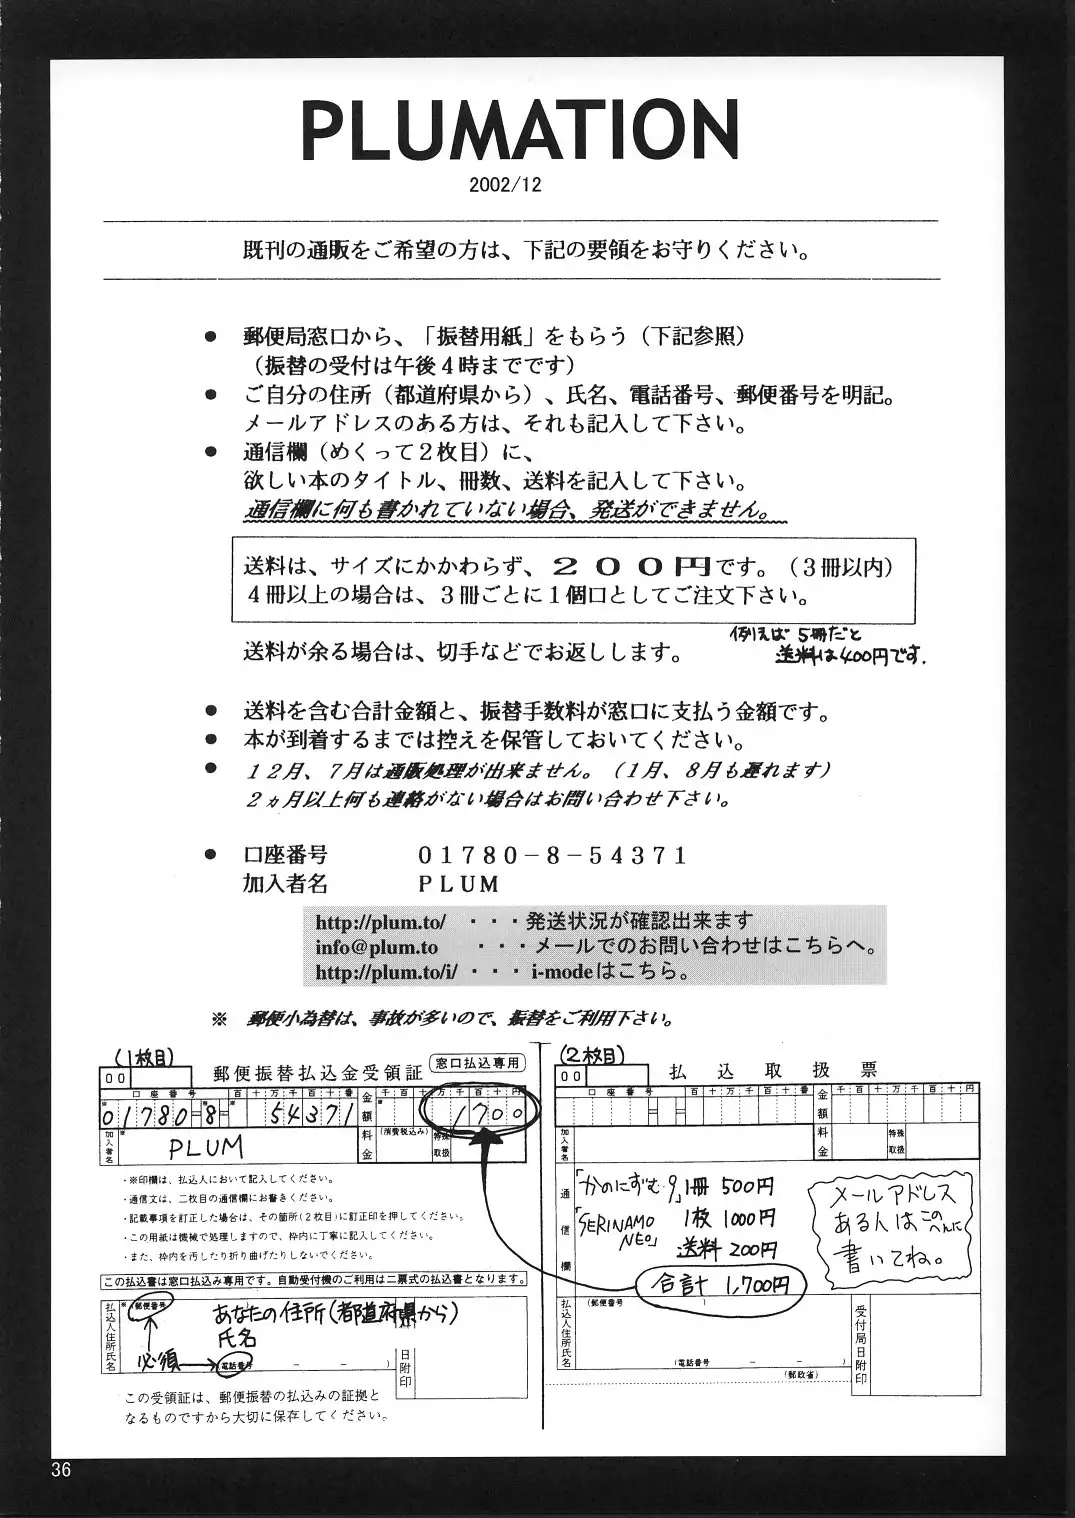 PLUMATION
2002/12
既刊の通販をご希望の方は、下記の要領をお守りください。
● 郵便局窓口から、「振替用紙」をもらう（下記参照）
（振替の受付は午後４時までです）
● ご自分の住所（都道府県から）、氏名、電話番号、郵便番号を明記。
メールアドレスのある方は、それも記入して下さい。
● 通信欄（めくって２枚目）に、
欲しい本のタイトル、冊数、送料を記入して下さい。
通信欄に何も書かれていない場合、発送ができません。
送料は、サイズにかかわらず、２００円です。（３冊以内）
４冊以上の場合は、３冊ごとに１個口としてご注文下さい。
例えば 5冊だと
送料が余る場合は、切手などでお返しします。
送料は400円です.
● 送料を含む合計金額と、振替手数料が窓口に支払う金額です。
● 本が到着するまでは控えを保管しておいてください。
● １２月、７月は通販処理が出来ません。（１月、８月も遅れます）
２ヵ月以上何も連絡がない場合はお問い合わせ下さい。
● 口座番号 ０１７８０－８－５４３７１
加入者名 ＰＬＵＭ
http://plum.to/ ・・・発送状況が確認出来ます
info@plum.to ・・・メールでのお問い合わせはこちらへ。
http://plum.to/i/ ・・・ i-modeはこちら。
※ 郵便小為替は、事故が多いので、振替をご利用下さい。
(1枚目)
00
郵便振替払込金受領証
窓口払込専用
口座番号 百十万千百十番
金額
千百十万千百十円
01780-8- 54371
1700
加入者名
PLUM
料金
(消費税込み)
特殊取扱
・※印欄は、払込人において記入してください。
・通信文は、二枚目の通信欄にお書きください。
・記載事項を訂正した場合は、その箇所(２枚目)に訂正印を押してください。
・この用紙は機械で処理しますので、枠内に丁寧に記入してください。
・また、枠内を汚したり折り曲げたりしないでください。
この払込書は窓口払込み専用です。自動受付機のご利用は二票式の払込書となります。
払込人住所氏名
(郵便番号)
あなたの住所(都道府県から)
氏名
必須
(電話番号 － － )
日附印
この受領証は、郵便振替の払込みの証拠と
なるものですから大切に保存してください。
(2枚目)
00
払込取扱票
口座番号 百十万千百十番
金額
千百十万千百十円
加入者名
料金
特殊取扱
通信欄
「かのにずむ9」1冊 500円
「SERINAMO NEO」 1枚 1000円
送料 200円
合計 1,700円
メールアドレス
ある人はこのへんに
書いてね。
払込人住所氏名
(郵便番号 )
(電話番号 － － )
受付局日附印
(郵政省)
36